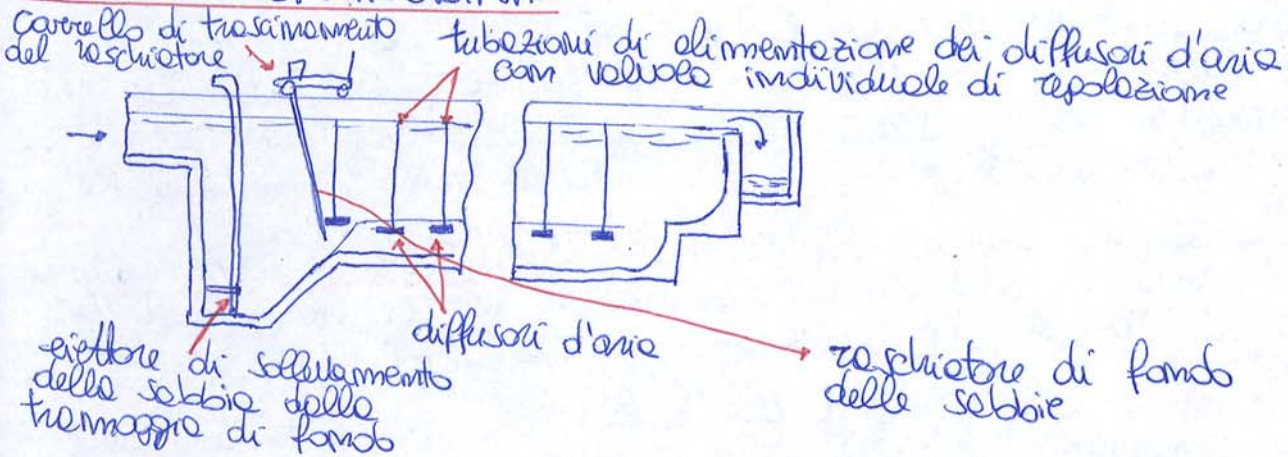 carrello di trascinamento
del raschiatore
tubazioni di alimentazione dei diffusori d'aria
con valvola individuale di regolazione
eiettore di sollevamento
della sabbia dalla
tramoggia di fondo
diffusori d'aria
raschiatore di fondo
delle sabbie